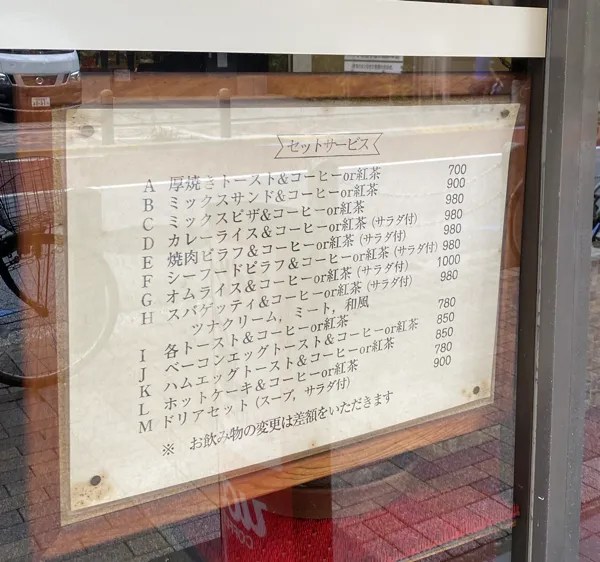 セットサービス
A 厚焼きトースト&コーヒーor紅茶 700
B ミックスサンド&コーヒーor紅茶 900
C ミックスピザ&コーヒーor紅茶 980
D カレーライス&コーヒーor紅茶 (サラダ付) 980
E 焼肉ピラフ&コーヒーor紅茶 (サラダ付) 980
F シーフードピラフ&コーヒーor紅茶 (サラダ付) 980
G オムライス&コーヒーor紅茶 (サラダ付) 1000
H スパゲッティ&コーヒーor紅茶 (サラダ付) 980
ツナクリーム，ミート，和風
I 各トースト&コーヒーor紅茶 780
J ベーコンエッグトースト&コーヒーor紅茶 850
K ハムエッグトースト&コーヒーor紅茶 850
L ホットケーキ&コーヒーor紅茶 780
M ドリアセット (スープ，サラダ付) 900
※ お飲み物の変更は差額をいただきます